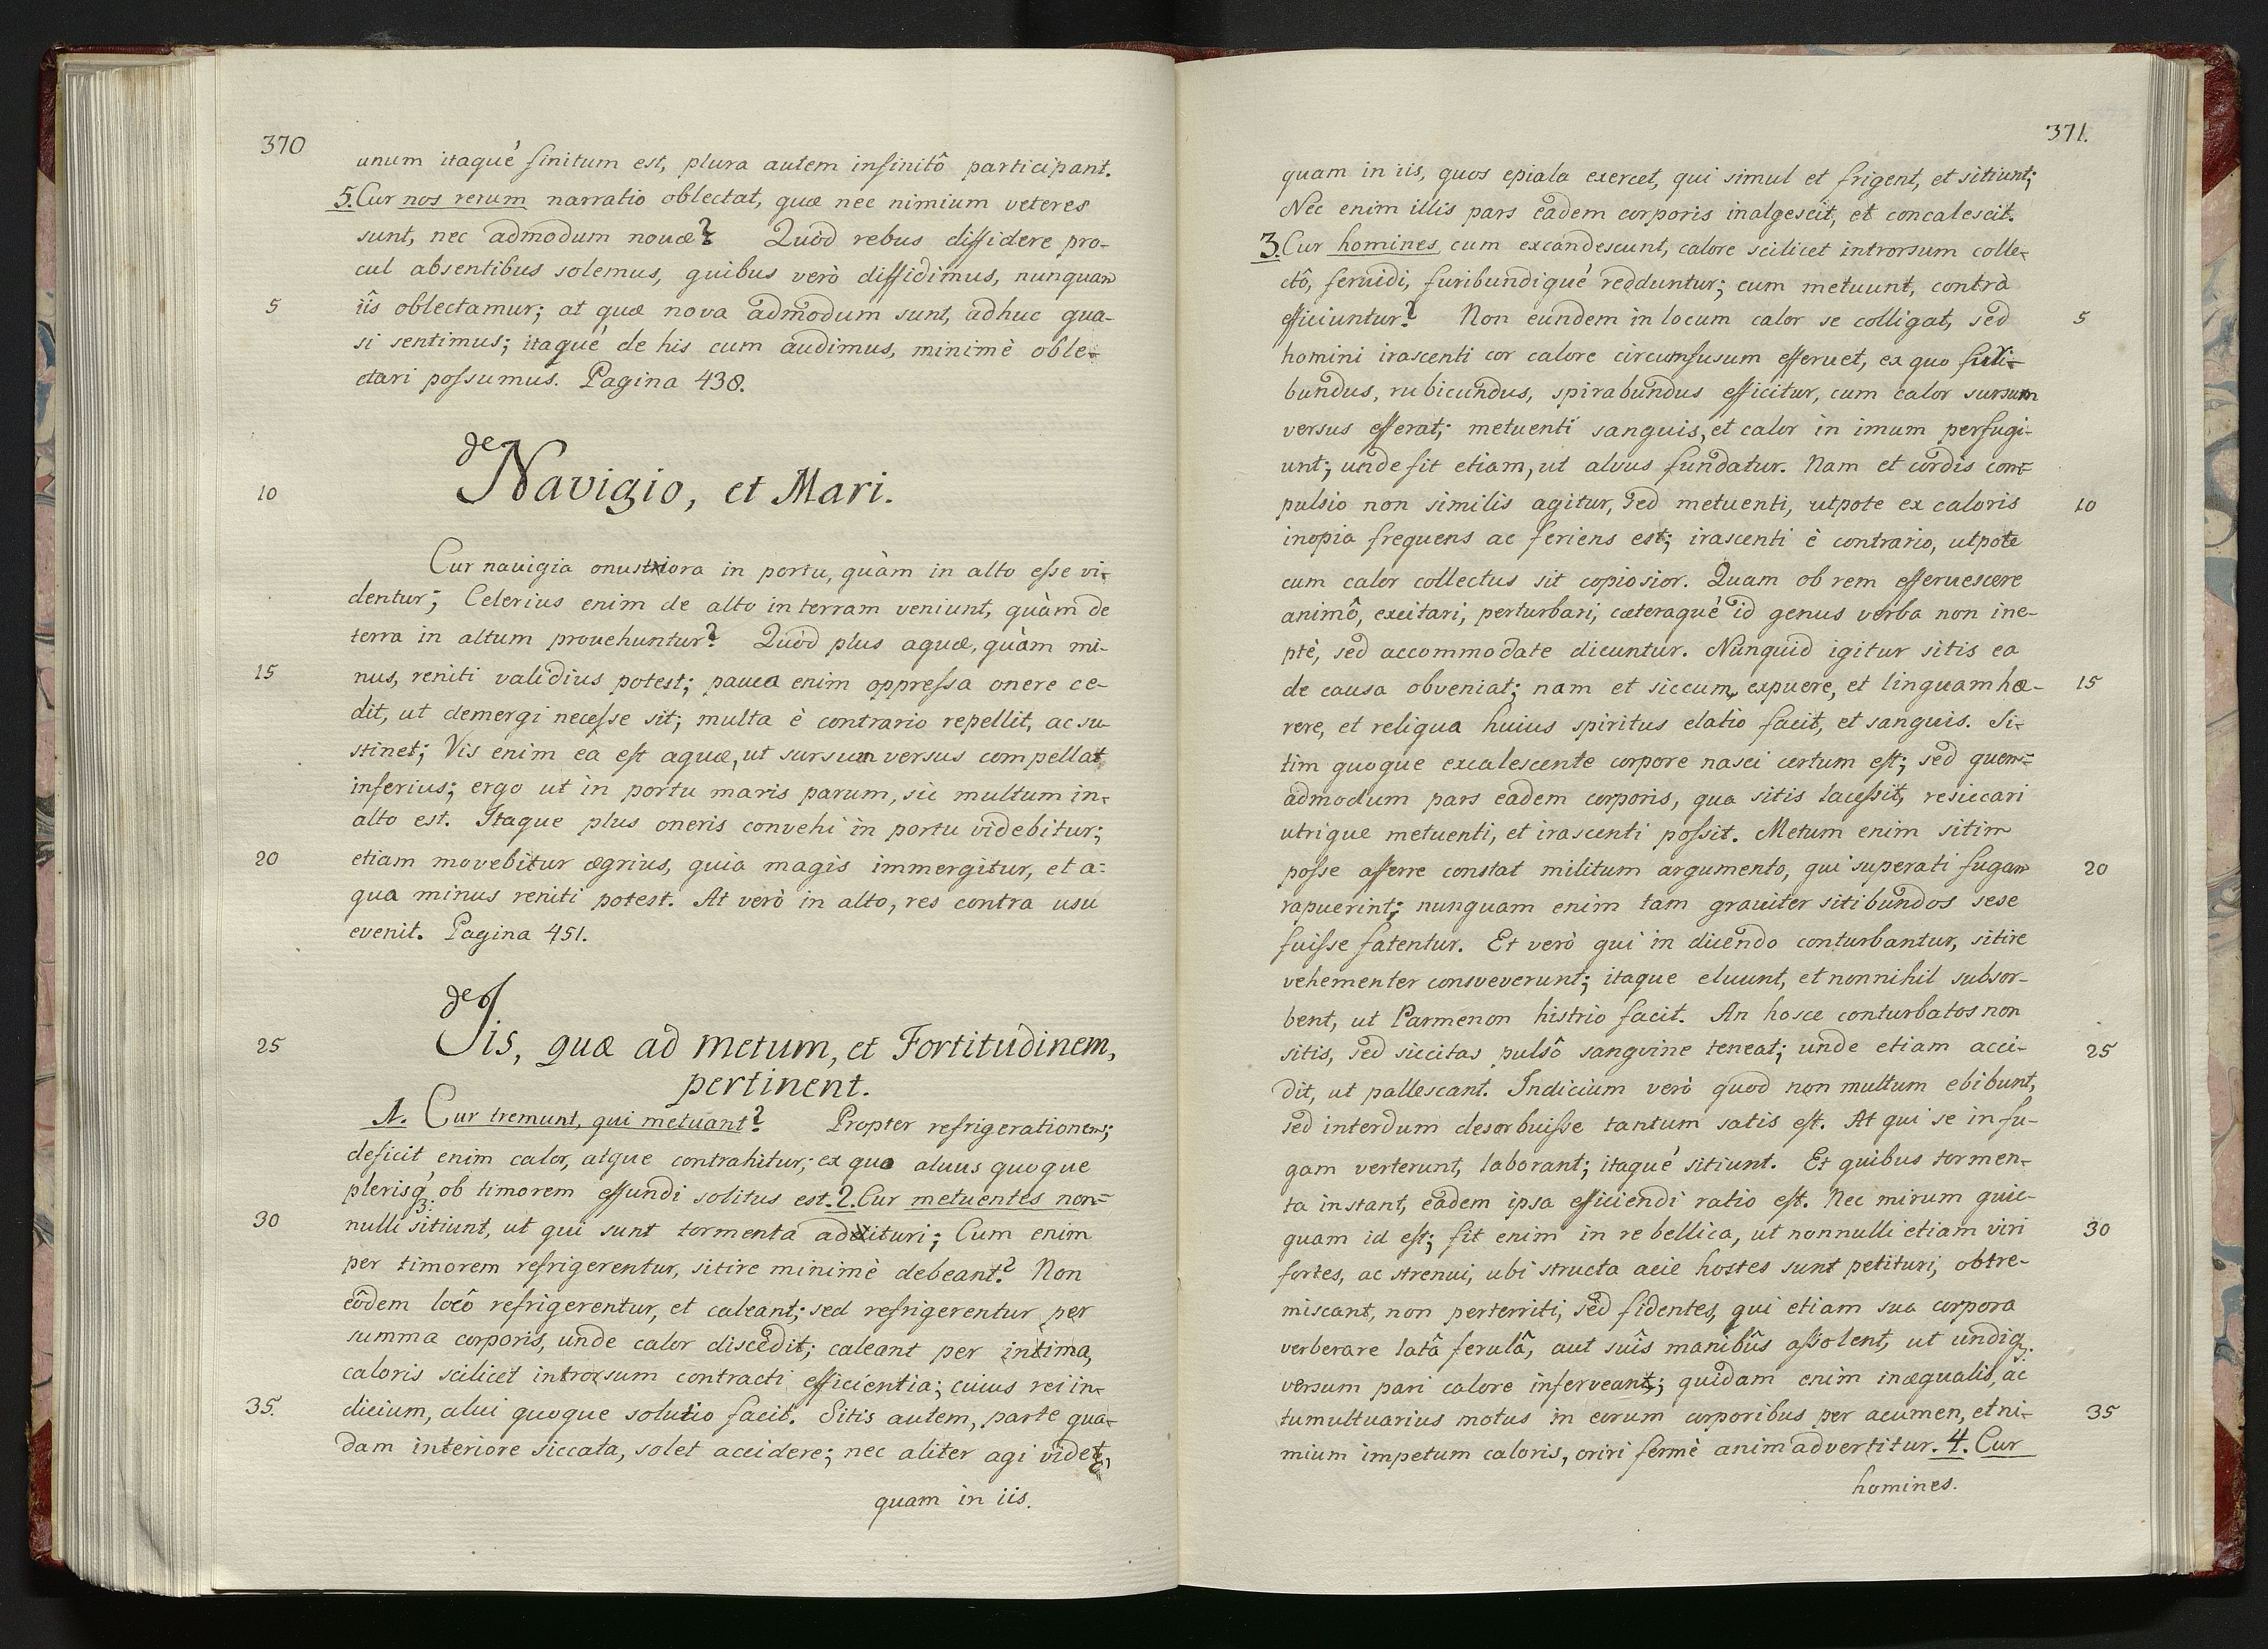 370
unum itaqué finitum est, plura autem infinitô participant.
5. Cur nos rerum narratio oblectat, quæ nec nimium veteres
sunt, nec admodum nouæ? Quòd rebus diffidere pro-
cul absentibus solemus, quibus verò diffidimus, nunquam
5 iîs oblectamur; at quæ nova admodum sunt, adhuc qua-
si sentimus; itaqué de his cum audimus, minimè oble-
ctari possumus. Pagina 438.
de
10 Navigio, et Mari.
Cur nauigia onustiora in portu, quàm in alto esse vi-
dentur; Celerius enim de alto in terram veniunt, quàm de
terra in altum prouehuntur? Quòd plus aquæ, quàm mi-
15 nus, reniti validius potest; pauca enim oppressa onere ce-
dit, ut demergi necesse sit; multa è contrario repellit, ac su-
stinet; Vis enim ea est aquæ, ut sursum versus compellat
inferius; ergo ut in portu maris parum, sic multum in-
alto est. Itaque plus oneris convehi in portu videbitur;
20 etiam movebitur ægrius, quia magis immergitur, et a-
qua minus reniti potest. At verò in alto, res contra usu
evenit. Pagina 451.
de
25 Iis, quæ ad metum, et Fortitudinem,
pertinent.
1. Cur tremunt, qui metuant? Propter refrigerationem;
deficit enim calor, atque contrahitur; ex quo aluus quoque
plerisq́; ob timorem effundi solitus est. 2. Cur metuentes non-
30 nulli sitiunt, ut qui sunt tormenta adituri; Cum enim
per timorem refrigerentur, sitire minimè debeant? Non
eôdem locô refrigerentur, et caleant; sed refrigerentur per
summa corporis, unde calor discedit; caleant per intima,
caloris scilicet introrsum contracti efficientia; cuius rei in-
35. dicium, alui quoque solutio facit. Sitis autem, parte qua-
dam interiore siccata, solet accidere; nec aliter agi videt,
quam in iis.
371.
quam in iis, quos epiala exercet, qui simul et frigent, et sitiunt;
Nec enim illis pars eadem corporis inalgescit, et concalescit.
3. Cur homines cum excandescunt, calore scilicet introrsum colle-
ctô, feruidi, furibundiqué redduntur; cum metuunt, contrà
efficiuntur? Non eundem in locum calor se colligat, sed 5
homini irascenti cor calore circumfusum efferuet, ex quo furi-
bundus, rubicundus, spirabundus efficitur, cum calor sursum
versus efferat; metuenti sanguis, et calor in imum perfugi-
unt; unde fit etiam, ut aluus fundatur. Nam et cordis com-
pulsio non similis agitur, sed metuenti, utpote ex caloris 10
inopia frequens ac feriens est; irascenti è contrario, utpote
cum calor collectus sit copiosior. Quam ob rem efferuescere
animô, excitari, perturbari, cæteraqué id genus verba non ine-
ptè, sed accommodate dicuntur. Nunquid igitur sitis ea
de causa obveniat; nam et siccum expuere, et linguam hæ- 15
rere, et reliqua huius spiritus elatio facit, et sanguis. Si-
tim quoque excalescente corpore nasci certum est; sed quem-
admodum pars eadem corporis, qua sitis lacessit, resiccari
utrique metuenti, et irascenti possit. Metum enim sitim
posse afferre constat militum argumento, qui superati fugam 20
rapuerint; nunquam enim tam grauiter sitibundos sese
fuisse fatentur. Et verò qui in dicendo conturbantur, sitire
vehementer consveverunt; itaque eluunt, et nonnihil subsor-
bent, ut Parmenon histrio facit. An hosce conturbatos non
sitis, sed siccitas pulsô sangvine teneat; unde etiam acci- 25
dit, ut pallescant. Indicium verò quod non multum ebibunt,
sed interdum desorbuisse tantum satis est. At qui se in fu-
gam verterunt, laborant; itaqué sitiunt. Et quibus tormen-
ta instant, eadem ipsa efficiendi ratio est. Nec mirum quic-
quam id est; fit enim in re bellica, ut nonnulli etiam viri 30
fortes, ac strenui, ubi structa acie hostes sunt petituri, obtre-
miscant, non perterriti, sed fidentes, qui etiam sua corpora
verberare latâ ferulâ, aut suîs manibûs assolent, ut undiq;
versum pari calore inferveant; quidam enim inæqualis, ac
tumultuarius motus in eorum corporibus per acumen, et ni- 35
mium impetum caloris, oriri fermè animadvertitur. 4. Cur
homines.